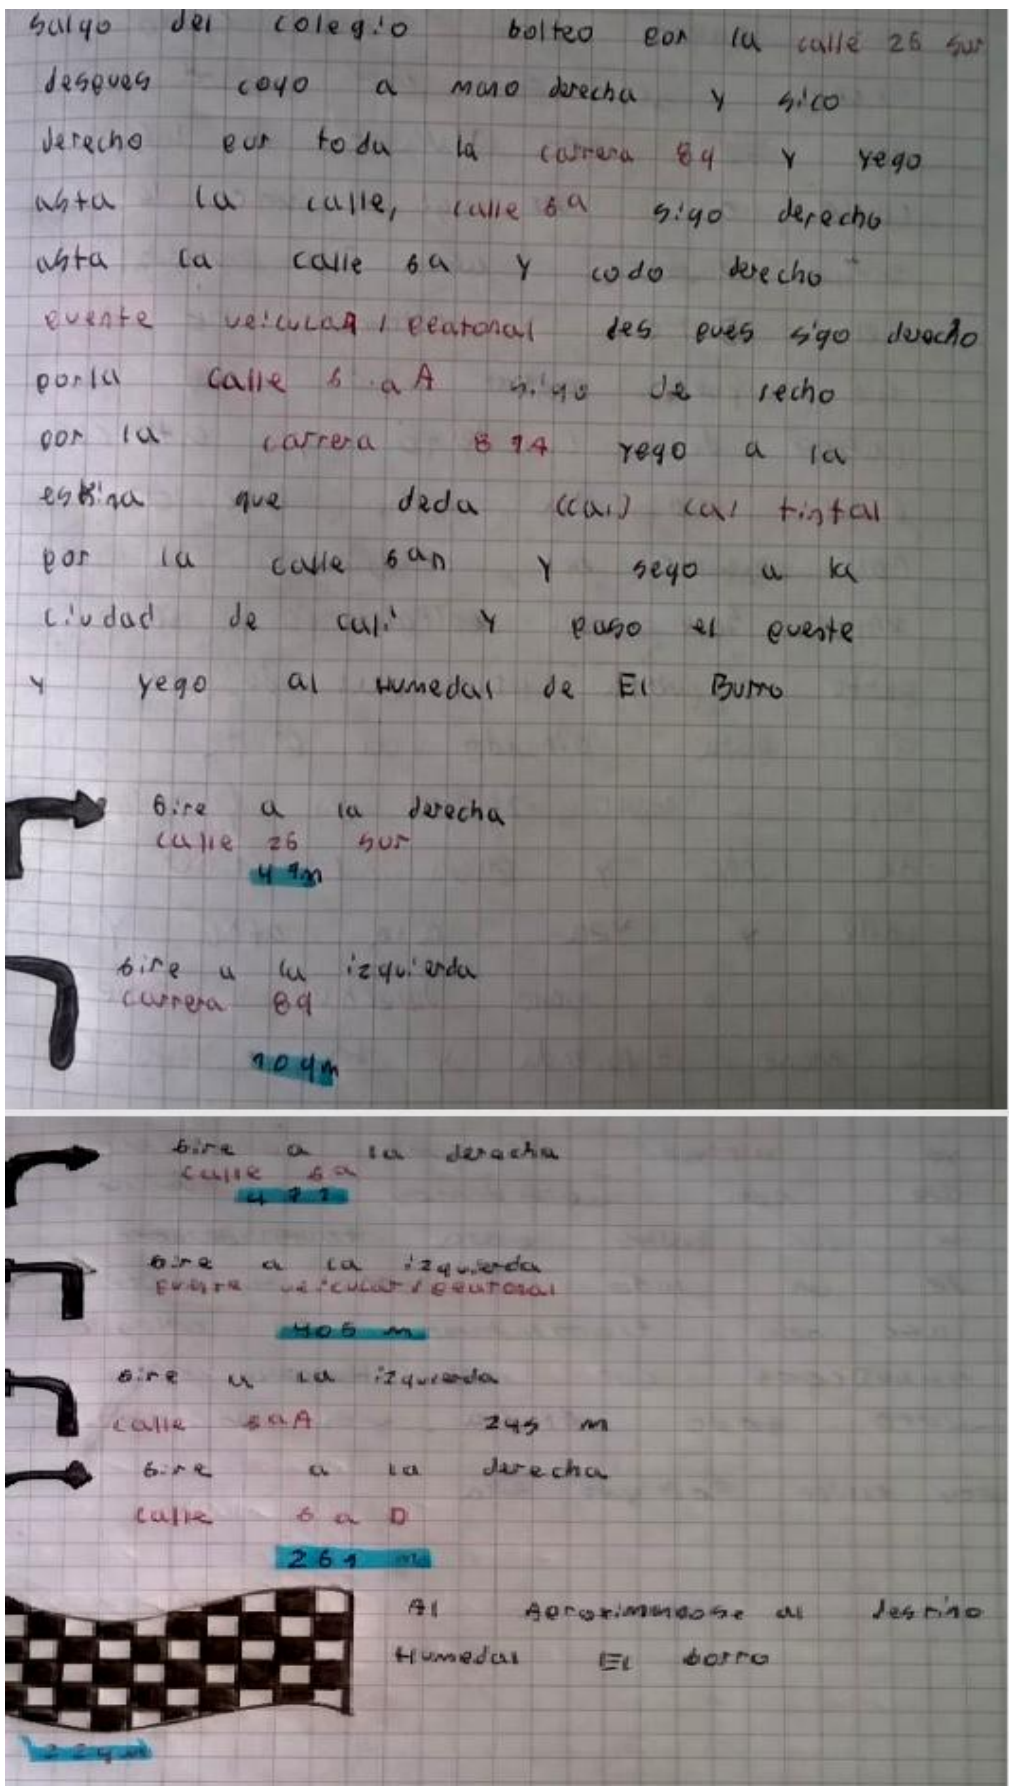 salgo del colegio bolteo por la calle 26 sur
despues coyo a mano derecha y sico
derecho por toda la carrera 89 y yego
asta la calle, calle 6a sigo derecho
asta la calle 6a y codo derecho
puente veicular / peatonal des pues sigo derecho
por la calle 6 a A sigo de recho
por la carrera 87A yego a la
eskina que deda (cai) cai tintal
por la calle 6an y sego a la
ciudad de cali y paso el puente
y yego al Humedal de El Burro
Gire a la derecha
calle 26 sur
47m
Gire a la izquierda
carrera 89
104m
Gire a la derecha
calle 6a
477
Gire a la izquierda
puente veicular / peatonal
405 m
Gire a la izquierda
calle 6aA 245 m
Gire a la derecha
calle 6 a D
261 m
Al Aproximandose al destino
Humedal El borro
224m